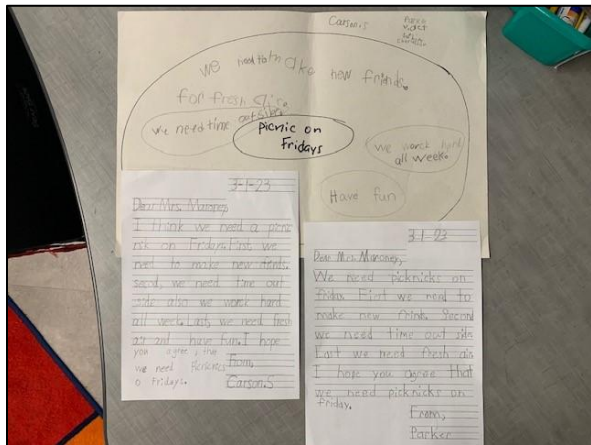 Carson.S
we need to make new frinds.
for fresh air
we need time outside
picnic on
Fridays
we worck hard
all week.
Have fun
3-1-23
Dear Mrs. Maroney,
I think we need a picnic
on Friday. First we
need to make new
secnd, we need time out
side also we worck hard
all week. Last, we need fresh
air and have fun. I hope
you agree, that
we need
o Fridays.
From,
Carson.S
3.1-23
Dear Mrs. Maroney,
We need picknicks on
friday. First we need to
make new frinds. Second
we need time out side
Last we need fresh air.
I hope you agree that
we need picknicks on
friday.
From,
Parker